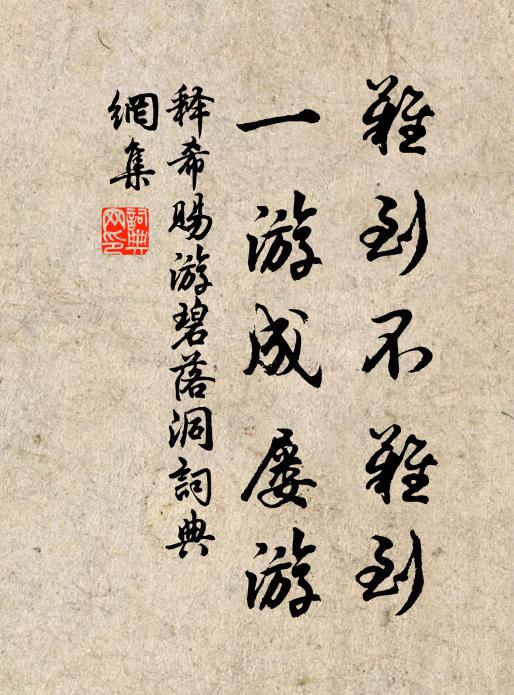 難到不難到
一游成屡游
释希赐游碧落洞詞典
網集
詞典
网印